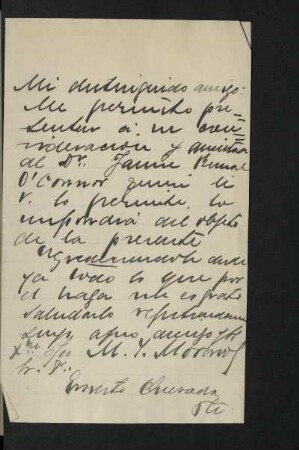 Mi distinguido amigo:
Me permito pre-
sentar á su con-
sideración y amistad
al Dr. Jaime
O'Connor quien si
V. lo permite, lo
impondrá del objeto
de la presente
Agradeciendole desde
ya todo lo que por
el haga me es grato
saludarlo
suyo afmo amigo y
M. Y. Moreno
Sr. Dr.
Ernesto Quesada
Pte.